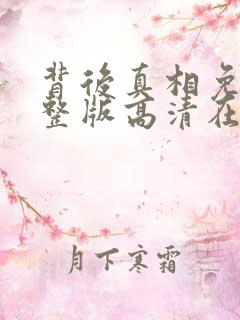 背後真相免
整版高清在
月下寒霜